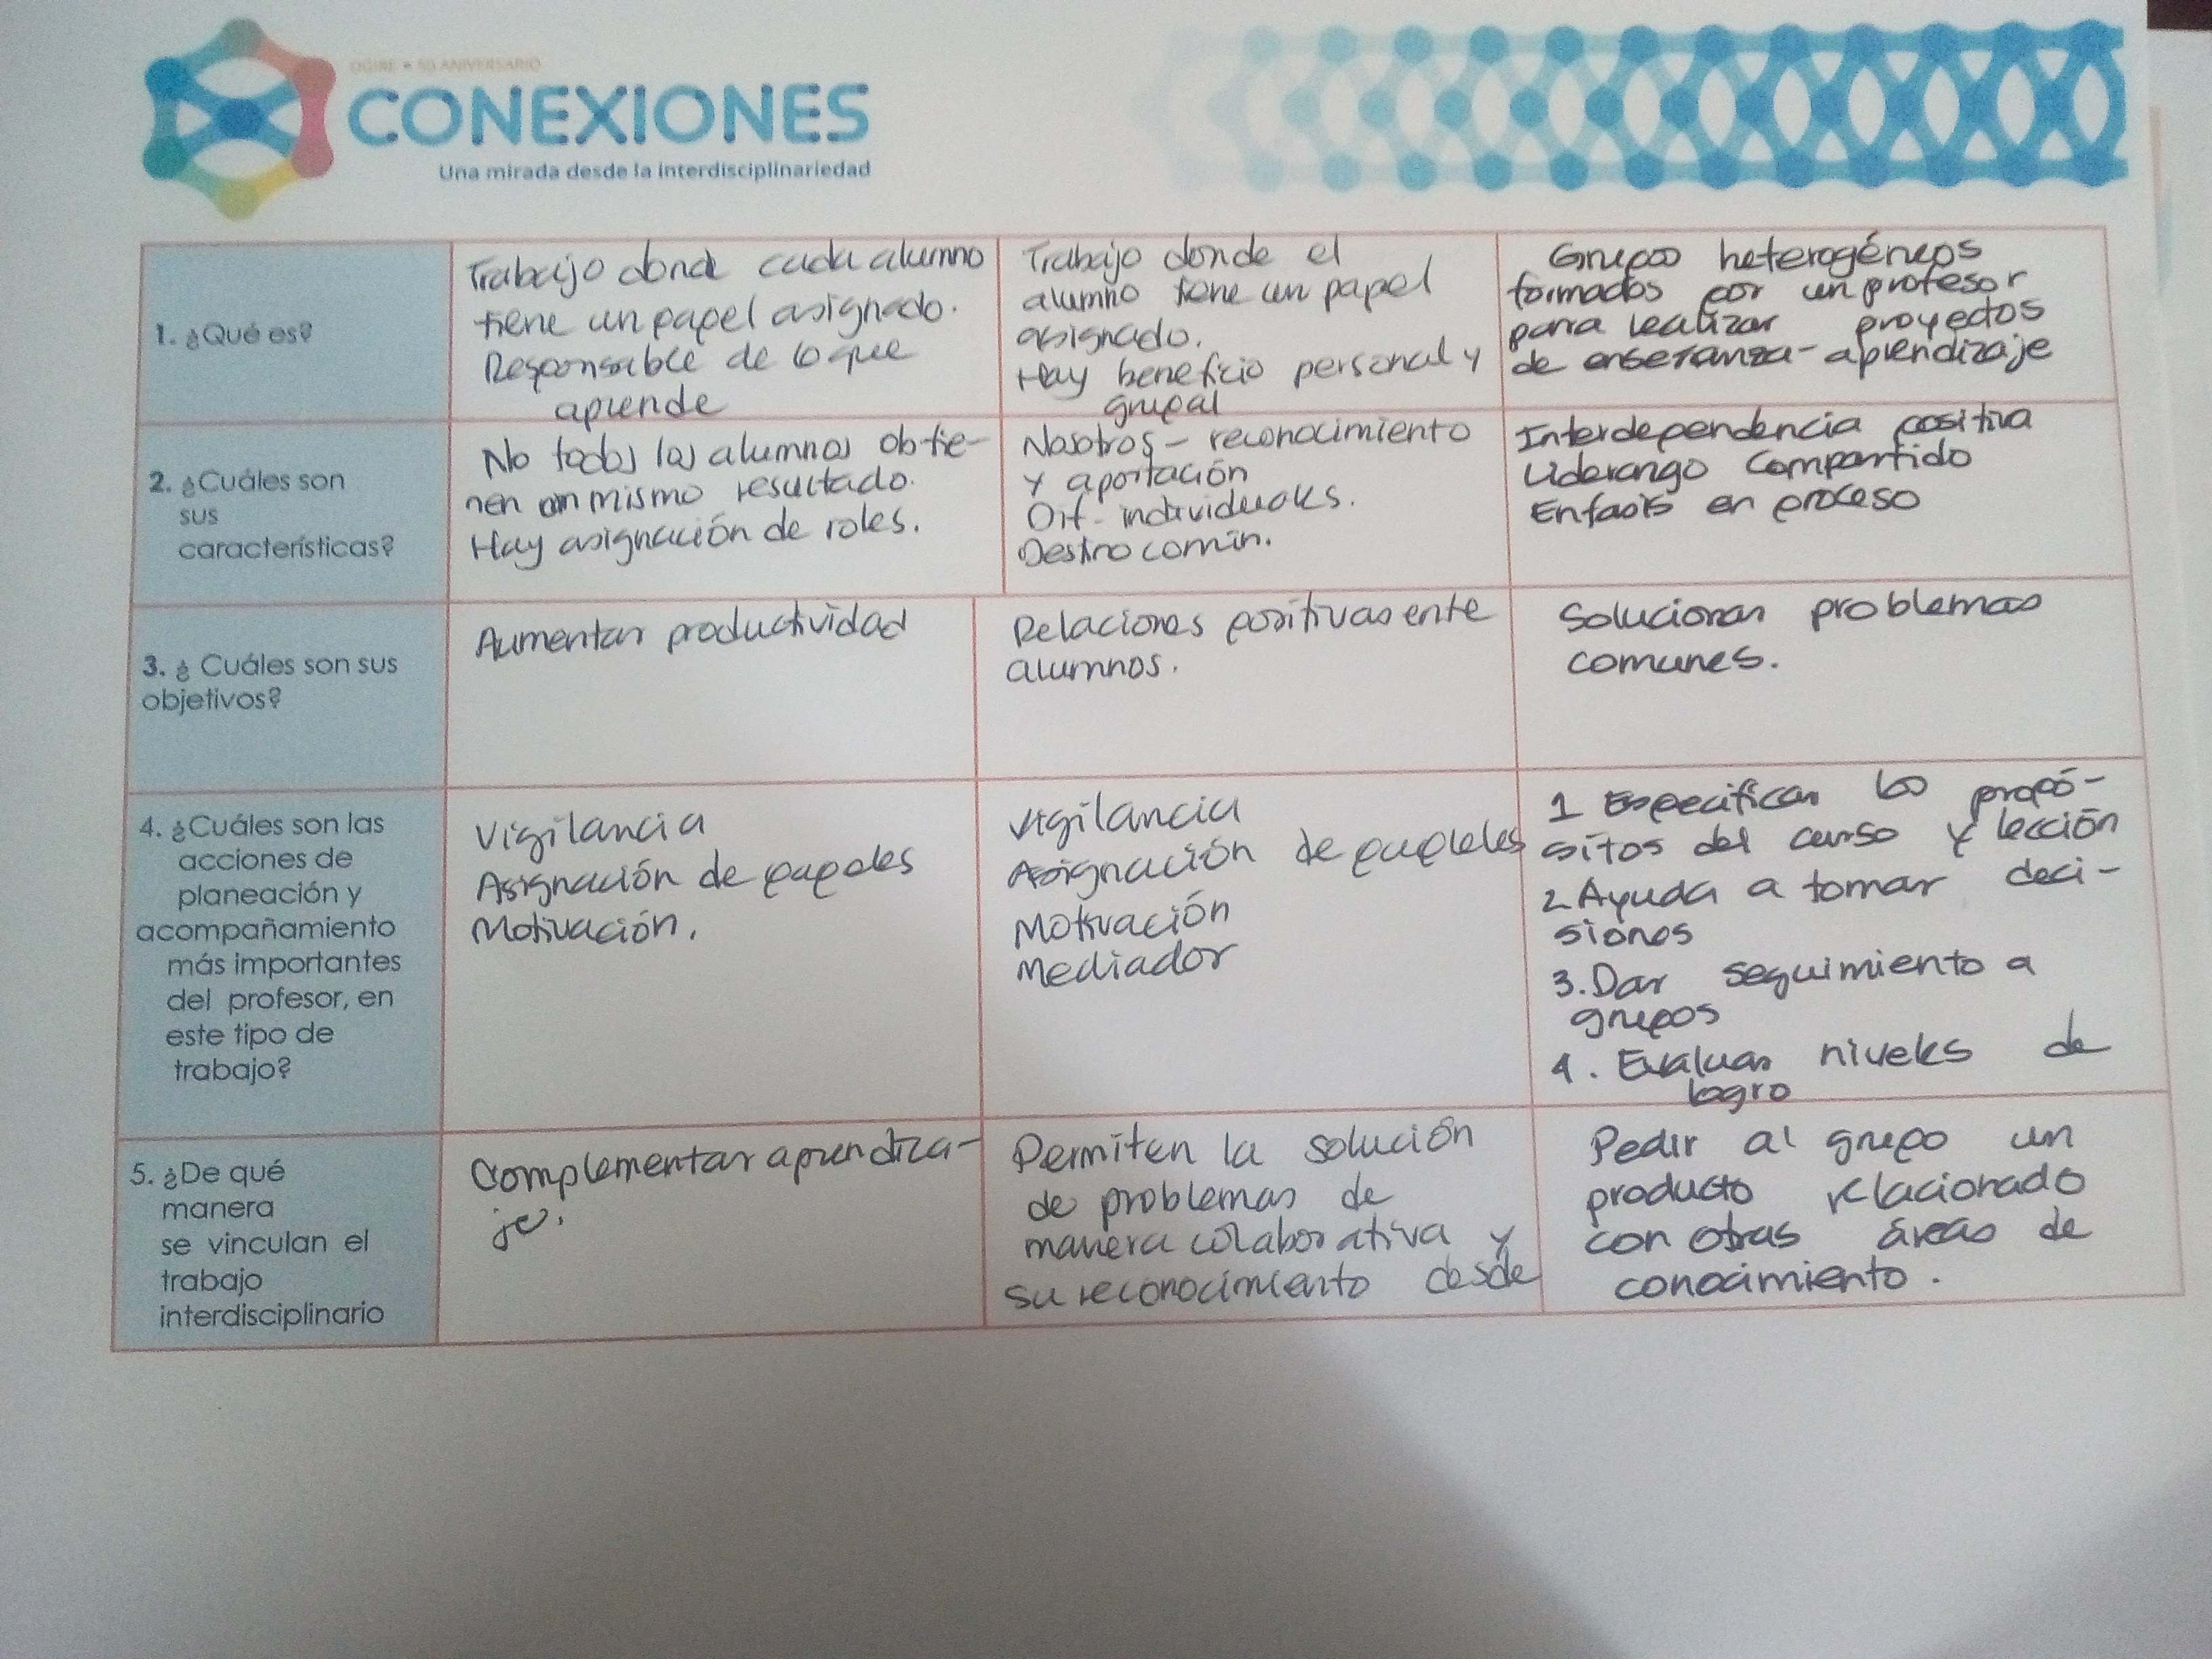 DGIRE • 50 ANIVERSARIO
CONEXIONES
Una mirada desde la interdisciplinariedad
1. ¿Qué es?
Trabajo donde cada alumno
tiene un papel asignado.
Responsable de lo que
aprende
Trabajo donde el
alumno tiene un papel
asignado.
Hay beneficio personal y
grupal
Grupos heterogéneos
formados por un profesor
para realizar proyectos
de enseñanza-aprendizaje
2. ¿Cuáles son
sus
características?
No todos los alumnos obtie-
nen un mismo resultado.
Hay asignación de roles.
Nosotros - reconocimiento
y aportación
Dif- individuales.
Destino común.
Interdependencia positiva
Liderazgo compartido
Enfasis en proceso
3. ¿ Cuáles son sus
objetivos?
Aumentar productividad
Relaciones positivas ente
alumnos.
Solucionar problemas
comunes.
4. ¿Cuáles son las
acciones de
planeación y
acompañamiento
más importantes
del profesor, en
este tipo de
trabajo?
Vigilancia
Asignación de papeles
Motivación.
Vigilancia
Asignación de
Motivación
Mediador
1 Especificar los propó-
sitos del curso y lección
2 Ayuda a tomar deci-
siones
3. Dar seguimiento a
grupos
4. Evaluar niveles de
logro
5. ¿De qué
manera
se vinculan el
trabajo
interdisciplinario
Complementar aprendiza-
je.
Permiten la solución
de problemas de
manera colaborativa y
su reconocimiento desde
Pedir al grupo un
producto relacionado
con otras áreas de
conocimiento.